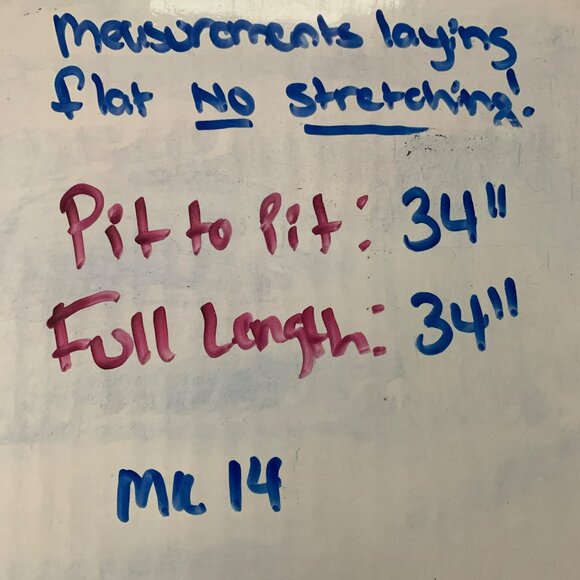 Measurements laying
flat NO stretching!
Pit to Pit: 34"
Full Length: 34"
MK 14